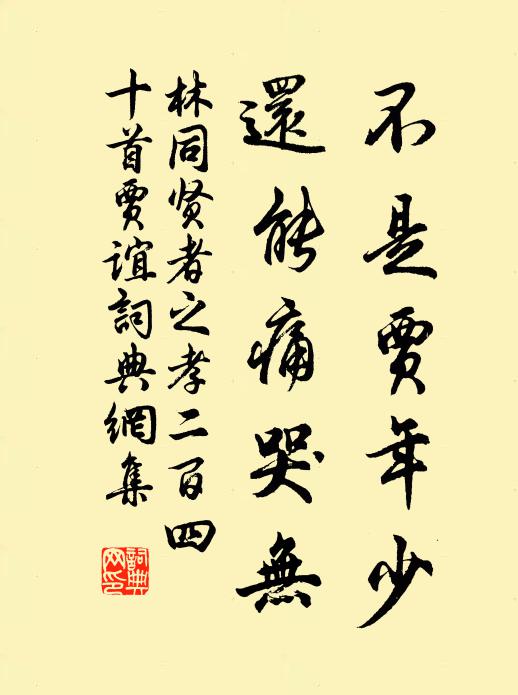 不是贾年少
還能痛哭無
林同贤者之孝二百四
十首賈誼詞典網集
詞典网印